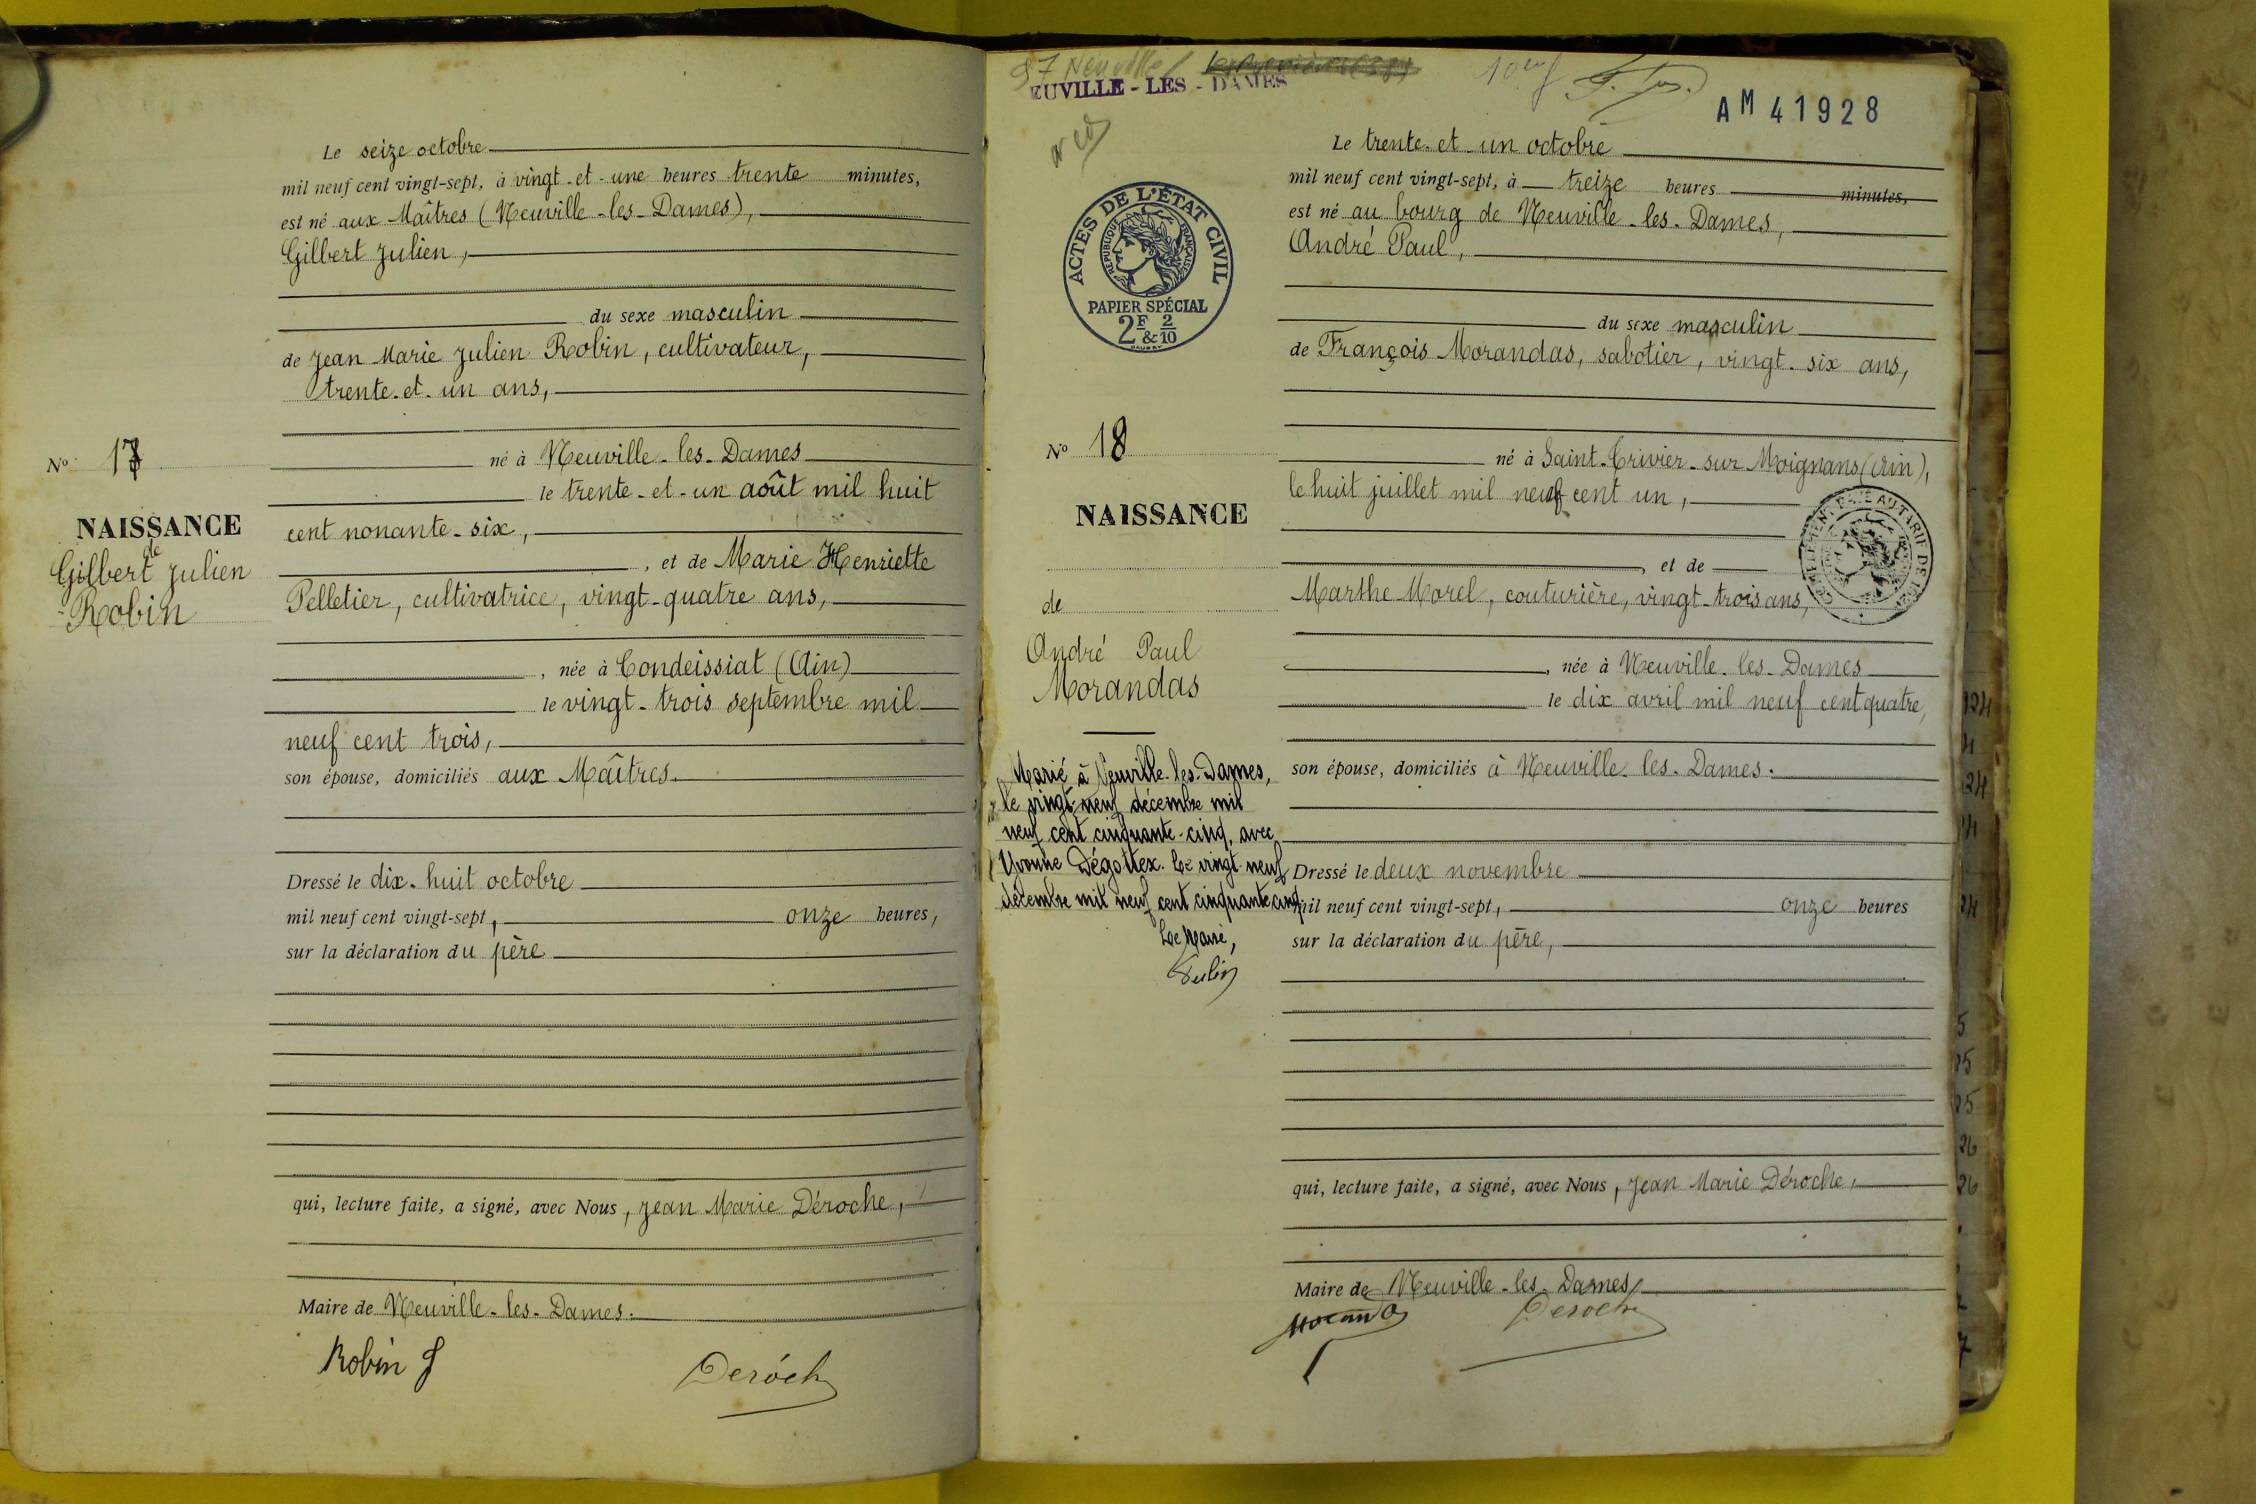 Le seize octobre
mil neuf cent vingt-sept, à vingt-et-une heures trente minutes,
est né aux Maîtres (Neuville-les-Dames),
Gilbert Julien,
du sexe masculin
de Jean Marie Julien Robin, cultivateur,
trente-et-un ans,
N° 17
né à Neuville-les-Dames
le trente-et-un août mil huit
NAISSANCE
de
Gilbert Julien
Robin
cent nonante-six,
, et de Marie Henriette
Pelletier, cultivatrice, vingt-quatre ans,
, née à Condeissiat (Ain)
le vingt-trois septembre mil
neuf cent trois,
son épouse, domiciliés aux Maîtres.
Dressé le dix-huit octobre
mil neuf cent vingt-sept, onze heures,
sur la déclaration du père
qui, lecture faite, a signé, avec Nous, Jean Marie Déroche,
Maire de Neuville-les-Dames.
Robin J
Deroch
97 Neuville
EUVILLE-LES-DAMES
AM 41928
ACTES DE L'ÉTAT CIVIL
RÉPUBLIQUE FRANÇAISE
PAPIER SPÉCIAL
2F & 2/10
Le trente-et-un octobre
mil neuf cent vingt-sept, à treize heures minutes,
est né au bourg de Neuville-les-Dames,
André Paul,
du sexe masculin
de François Morandas, sabotier, vingt-six ans,
N° 18
né à Saint-Trivier-sur-Moignans (Ain),
le huit juillet mil neuf cent un,
NAISSANCE
, et de
de
Marthe Morel, couturière, vingt-trois ans,
André Paul
Morandas
, née à Neuville-les-Dames
le dix avril mil neuf cent quatre,
son épouse, domiciliés à Neuville-les-Dames.
Marié à Neuville-les-Dames,
le vingt-neuf décembre mil
neuf cent cinquante-cinq, avec
Yvonne Dégottex. Le vingt-neuf
décembre mil neuf cent cinquante cinq
Le Maire,
Dressé le deux novembre
mil neuf cent vingt-sept, onze heures
sur la déclaration du père,
qui, lecture faite, a signé, avec Nous, Jean Marie Déroche,
Maire de Neuville-les-Dames
Morandas
Deroch